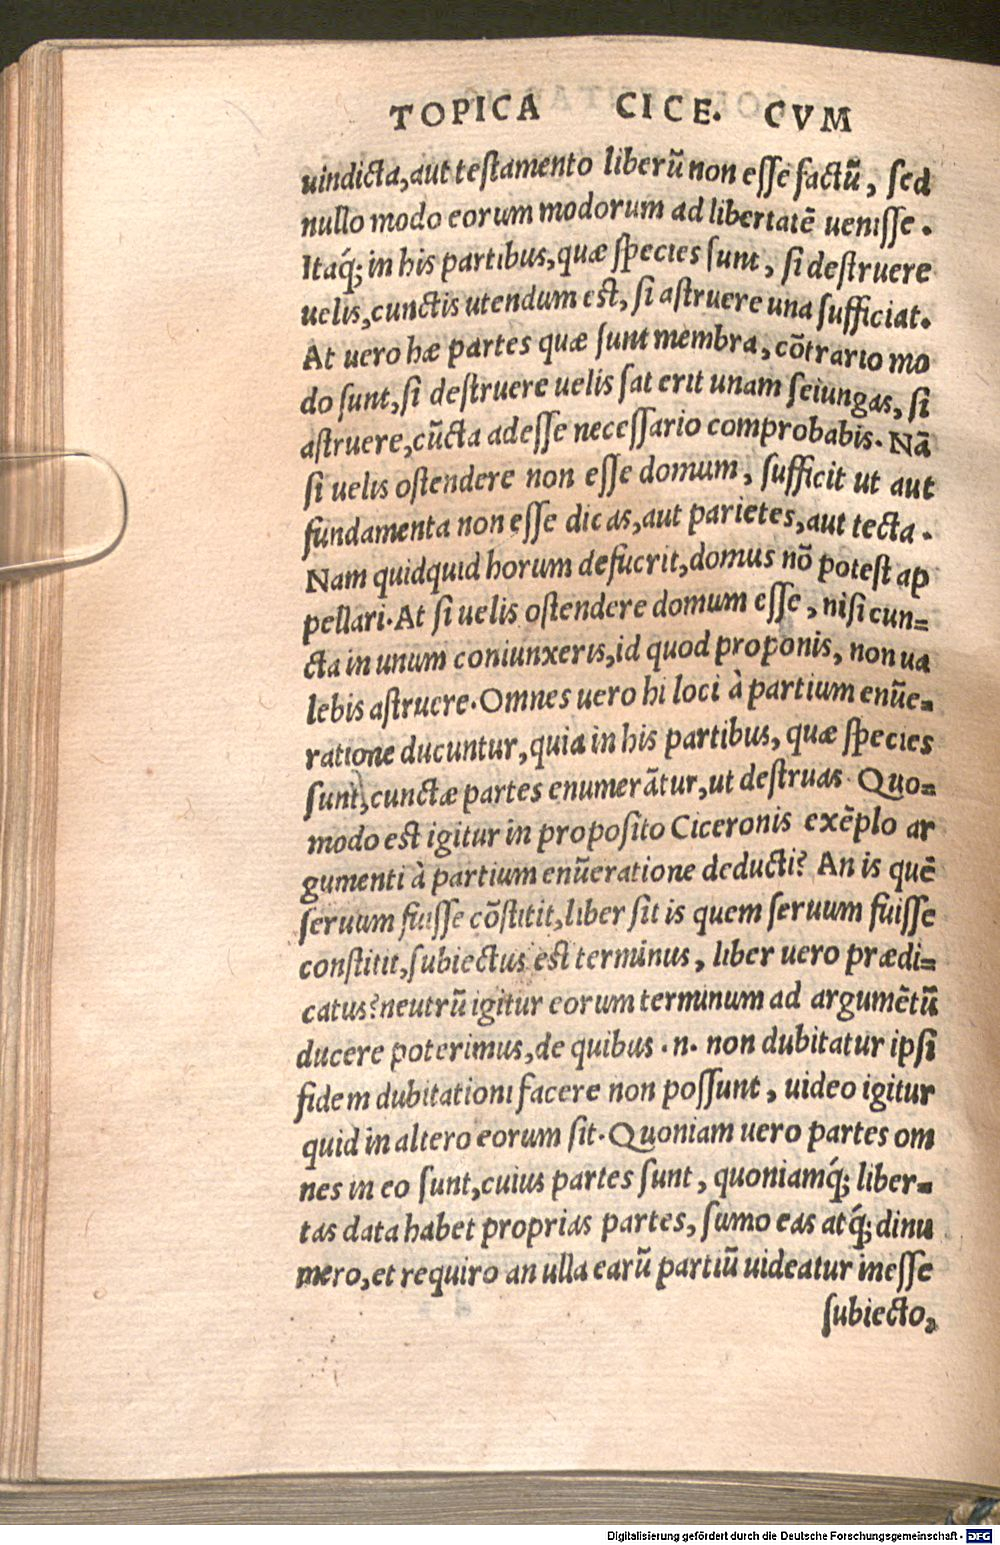 TOPICA CICE. CVM
uindicta, aut testamento liberũ non esse factũ, sed
nullo modo eorum modorum ad libertatẽ uenisse.
Itaq́; in his partibus, quæ species sunt, si destruere
uelis, cunctis utendum est, si astruere una sufficiat.
At uero hæ partes quæ sunt membra, cõtrario mo
do sunt, si destruere uelis sat erit unam seiungas, si
astruere, cũcta adesse necessario comprobabis. Nã
si uelis ostendere non esse domum, sufficit ut aut
fundamenta non esse dicas, aut parietes, aut tecta.
Nam quidquid horum defuerit, domus nõ potest ap
pellari. At si uelis ostendere domum esse, nisi cun=
cta in unum coniunxeris, id quod proponis, non ua
lebis astruere. Omnes uero hi loci à partium enũe=
ratione ducuntur, quia in his partibus, quæ species
sunt, cunctæ partes enumerãtur, ut destruas. Quo=
modo est igitur in proposito Ciceronis exẽplo ar
gumenti à partium enũeratione deducti? An is quẽ
seruum fuisse cõstitit, liber sit is quem seruum fuisse
constitit, subiectus est terminus, liber uero prædi=
catus? neutrũ igitur eorum terminum ad argumẽtũ
ducere poterimus, de quibus .n. non dubitatur ipsi
fidem dubitationi facere non possunt, uideo igitur
quid in altero eorum sit. Quoniam uero partes om
nes in eo sunt, cuius partes sunt, quoniamq́; liber=
tas data habet proprias partes, sumo eas atq́; dinu
mero, et requiro an ulla earũ partiũ uideatur inesse
subiecto,
Digitalisierung gefördert durch die Deutsche Forschungsgemeinschaft - DFG